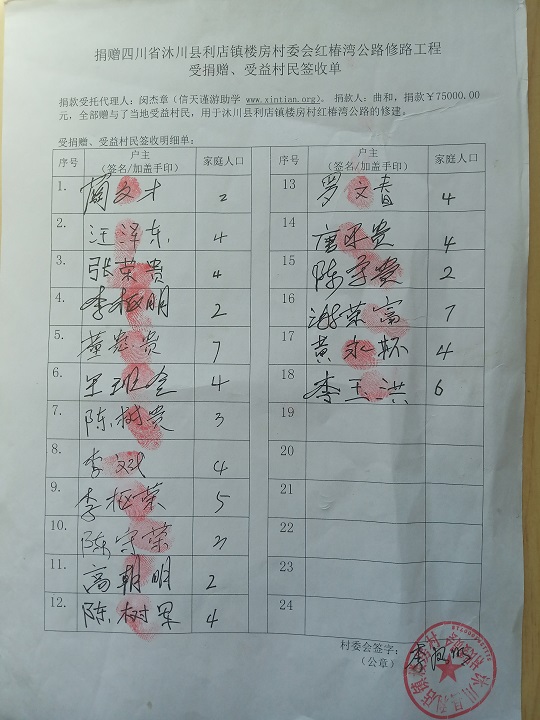 捐赠四川省沐川县利店镇楼房村委会红椿湾公路修路工程
受捐赠、受益村民签收单
捐款受托代理人：闵杰章（信天谨游助学 www.xintian.org）。捐款人：曲和，捐款￥75000.00
元，全部赠与了当地受益村民，用于沐川县利店镇楼房村红椿湾公路的修建。
受捐赠、受益村民签收明细单：
序号 户主（签名/加盖手印） 家庭人口
1. 文才 2
2. 汪泽东 4
3. 张荣贵 4
4. 李极明 2
5. 贵 7
6. 4
7. 陈树贵 3
8. 李斌 4
9. 李极荣 5
10. 陈守荣 3
11. 高朝明 2
12. 陈树军 4
序号 户主（签名/加盖手印） 家庭人口
13 罗文春 4
14 唐贵 4
15 陈学贵 2
16 谢荣富 7
17 黄永怀 4
18 李玉洪 6
19
20
21
22
23
24
村委会签字：
（公章）